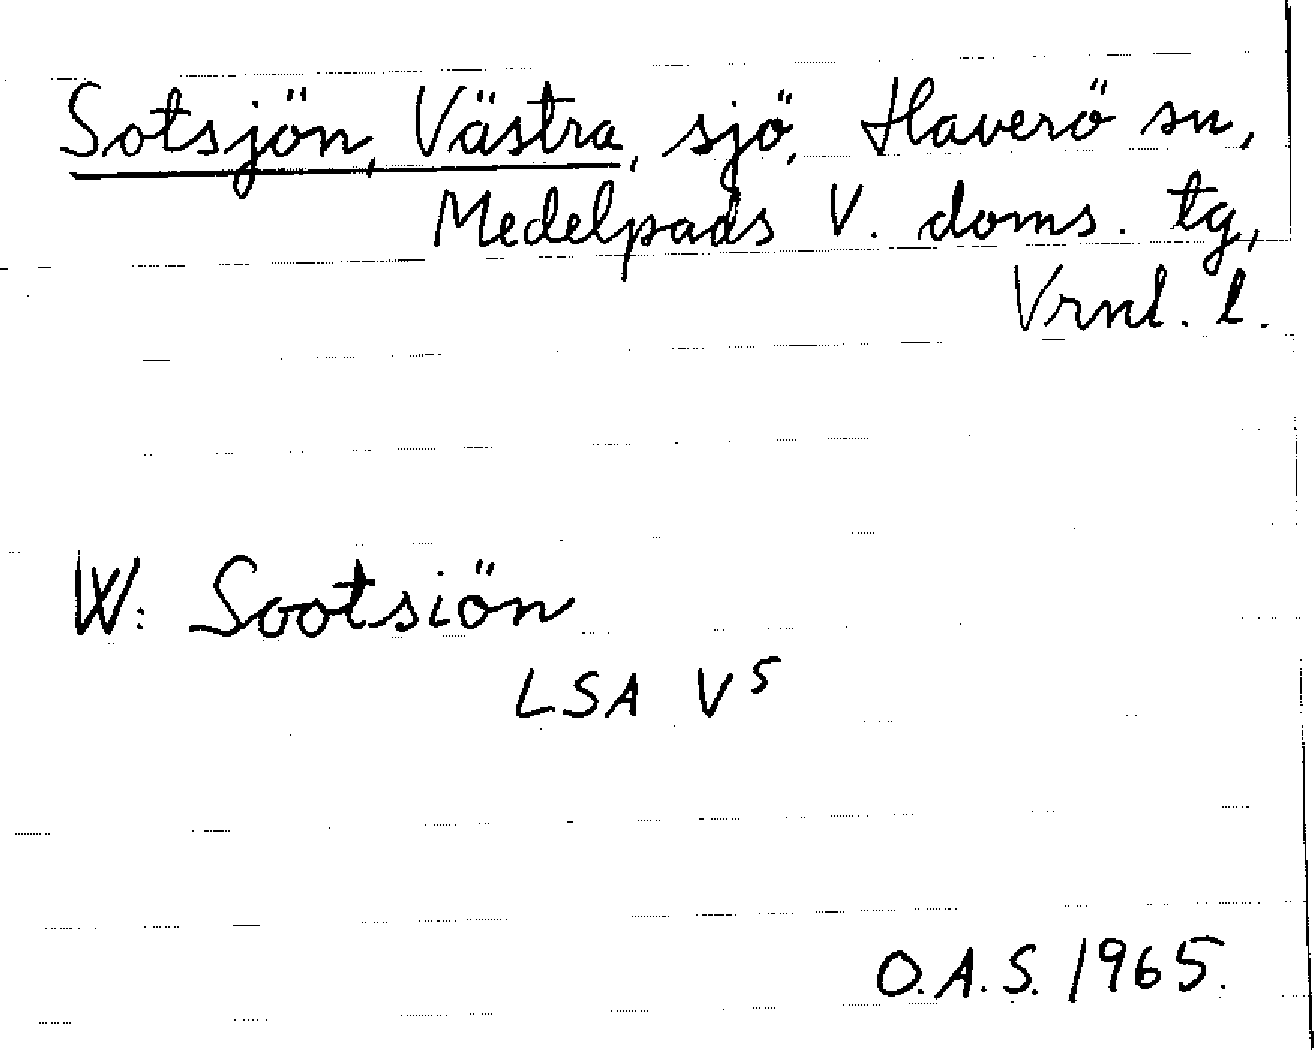 Sotsjön, Västra, sjö, Haverö sn,
Medelpads V. doms. tg,
Vrnl. l.
W: Sootsiön
LSA V⁵
O.A.S. 1965.